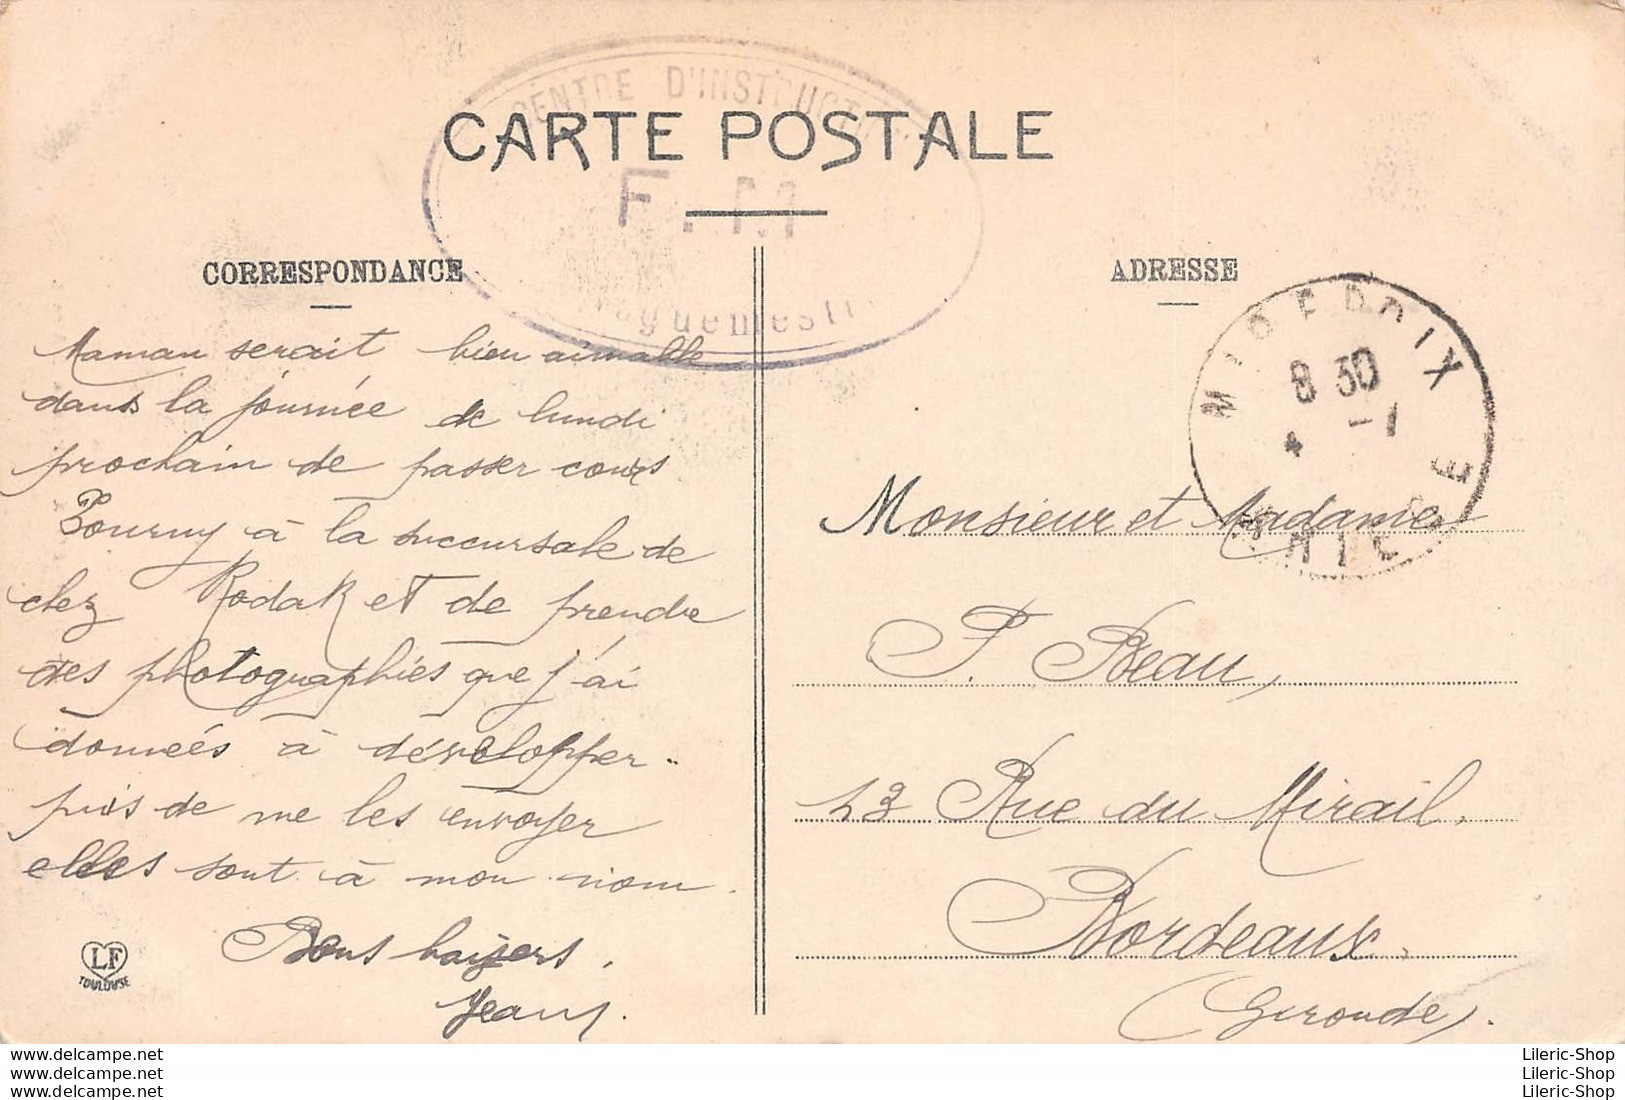 CENTRE D'INSTRUCTI
CARTE POSTALE
F. M
CORRESPONDANCE
guemest
ADRESSE
MIREPOIX
8 30
4 -1
ARIEGE
Maman serait bien aimable
dans la journée de lundi
prochain de passer cours
Tourny à la succursale de
chez Kodak et de prendre
des photographies que j'ai
données à développer.
puis de me les envoyer
elles sont à mon nom.
Bons baisers.
Jean
LF
TOULOUSE
Monsieur et Madame
P. Beau,
23 Rue du Mirail,
Bordeaux.
(Gironde).
www.delcampe.net
www.delcampe.net
www.delcampe.net
Lileric-Shop
Lileric-Shop
Lileric-Shop